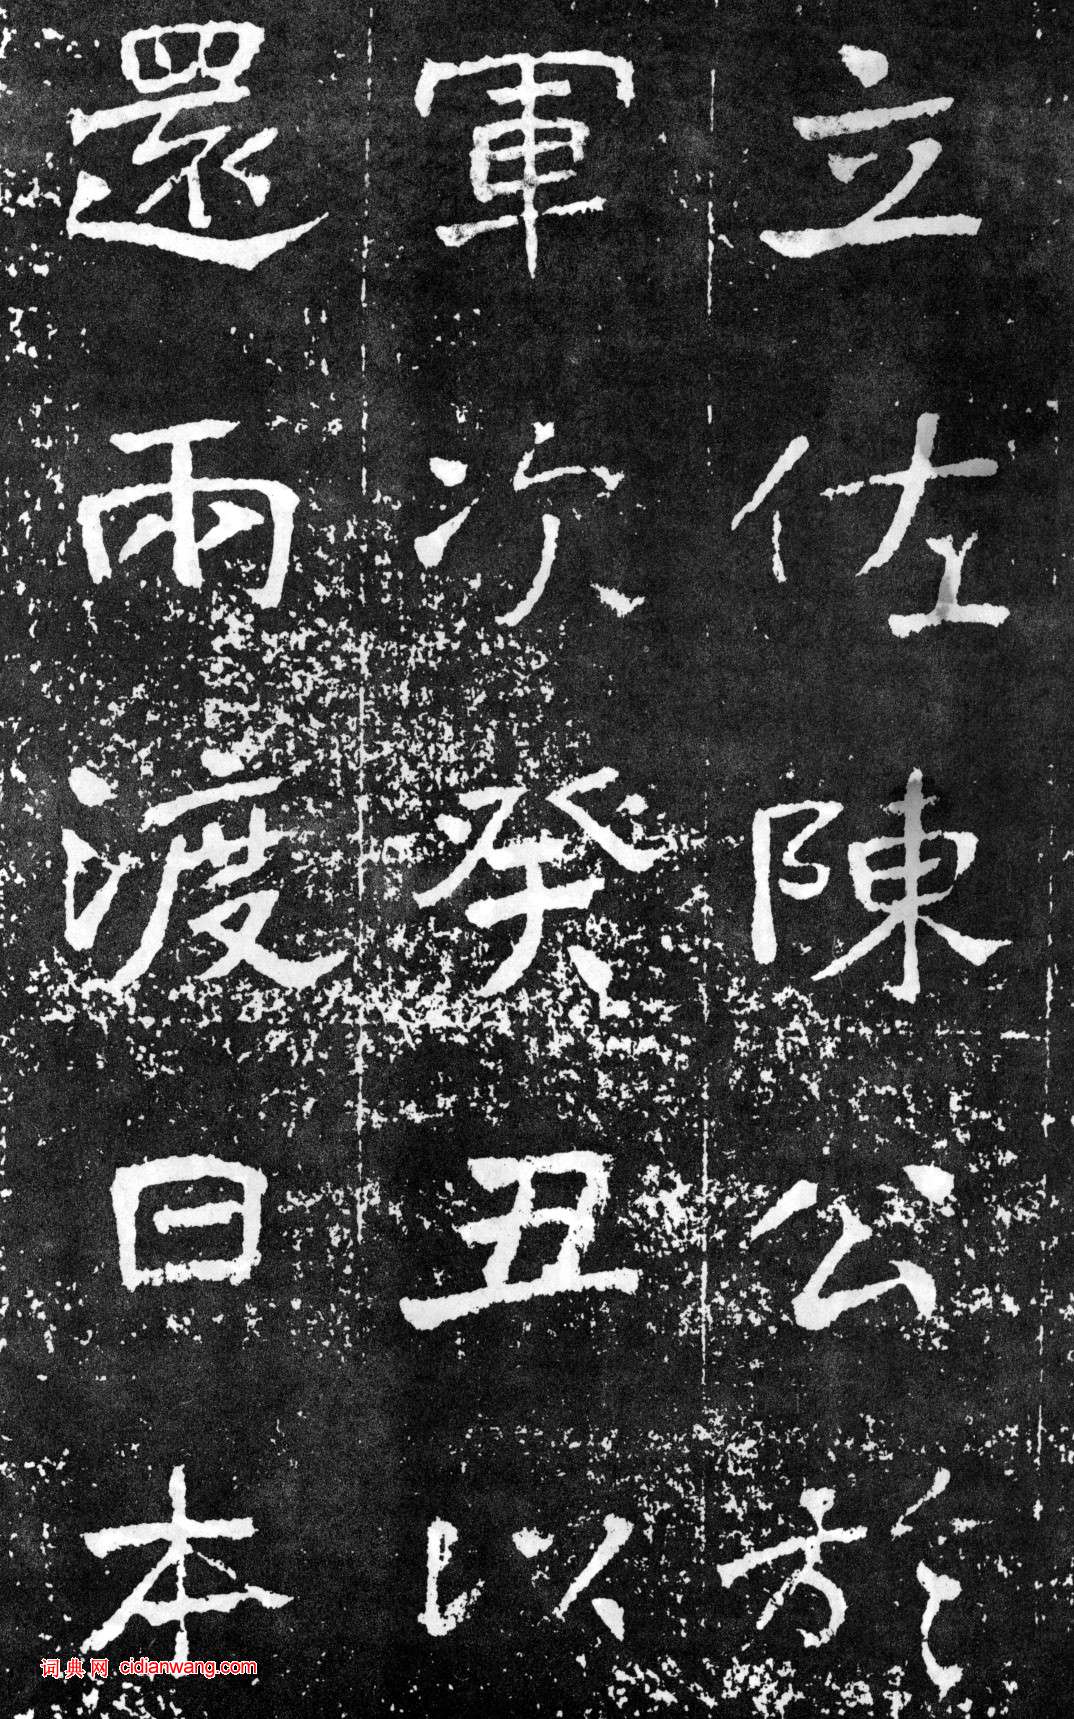 立佐陳公於
軍次癸丑以
還兩渡日本
词典网 cidianwang.com